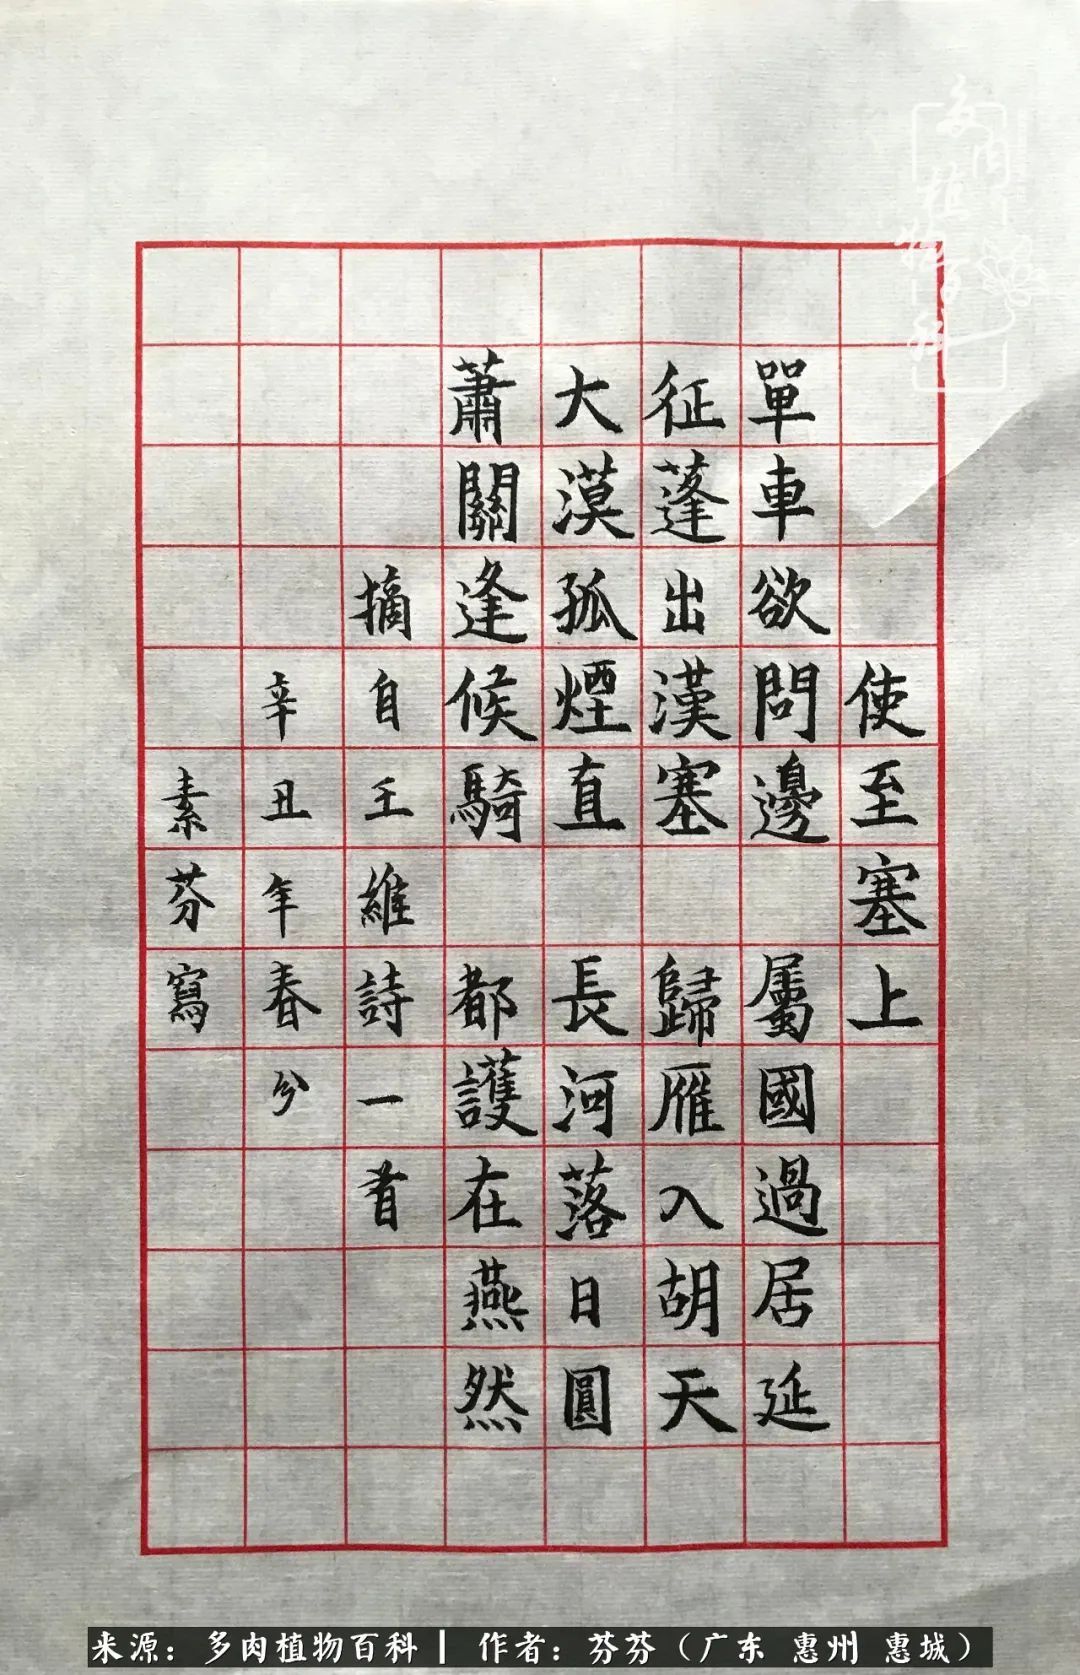 多肉植物百科
使至塞上
單車欲問邊 屬國過居延
征蓬出漢塞 歸雁入胡天
大漠孤煙直 長河落日圓
蕭關逢候騎 都護在燕然
摘自王維詩一首
辛丑年春分
素芬寫
来源：多肉植物百科 | 作者：芬芬（广东 惠州 惠城）